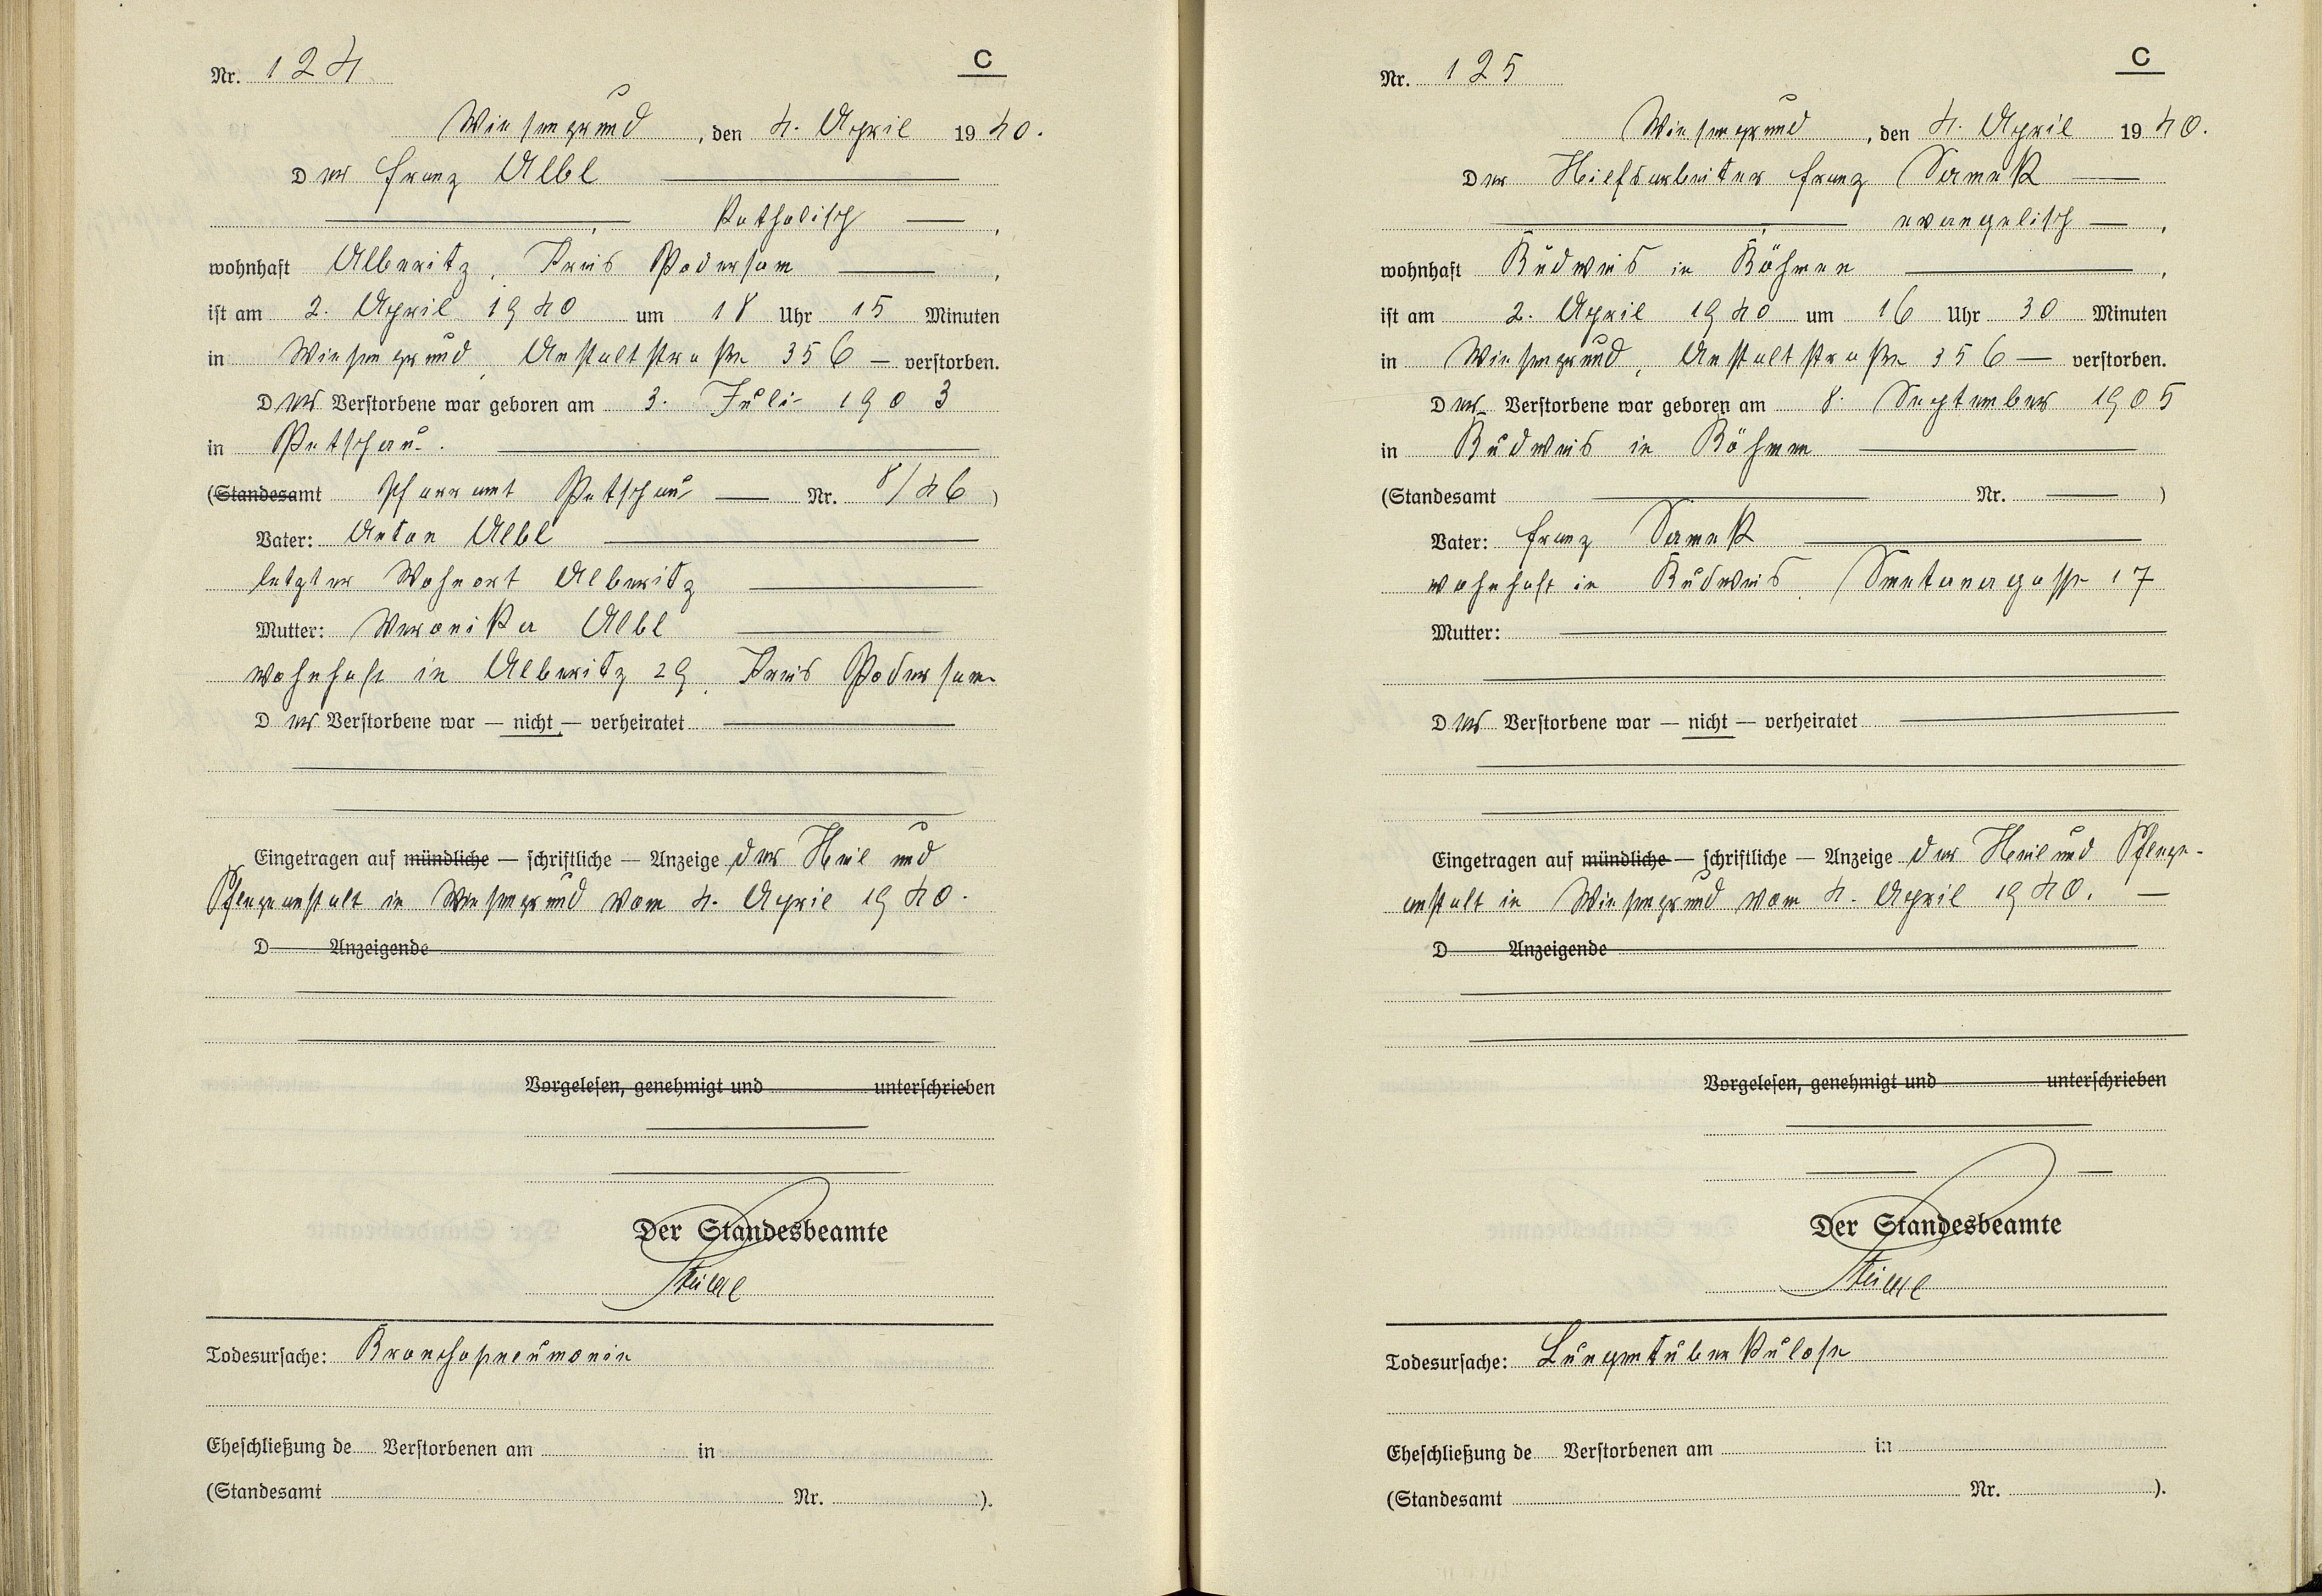 Nr. 124
C
Wiesengrund, den 4. April 1940.
Der Franz Albl
katholisch,
wohnhaft Alberitz, Kreis Podersam,
ist am 2. April 1940 um 18 Uhr 15 Minuten
in Wiesengrund, Anstaltstraße 356 — verstorben.
Der Verstorbene war geboren am 3. Juli 1903
in Petschau.
(Standesamt Pfarramt Petschau — Nr. 8/46)
Vater: Anton Albl
letzter Wohnort Alberitz
Mutter: Veronika Albl
wohnhaft in Alberitz 29, Kreis Podersam
Der Verstorbene war — nicht — verheiratet
Eingetragen auf mündliche — schriftliche — Anzeige der Heil und
Pflegeanstalt in Wiesengrund vom 4. April 1940.
D Anzeigende
Vorgelesen, genehmigt und unterschrieben
Der Standesbeamte
Todesursache: Bronchopneumonie
Eheschließung de Verstorbenen am in
(Standesamt Nr. ).
Nr. 125
C
Wiesengrund, den 4. April 1940.
Der Hilfsarbeiter Franz Samek
evangelisch —,
wohnhaft Budweis in Böhmen,
ist am 2. April 1940 um 16 Uhr 30 Minuten
in Wiesengrund, Anstaltstraße 356 — verstorben.
Der Verstorbene war geboren am 8. September 1905
in Budweis in Böhmen
(Standesamt — Nr. — )
Vater: Franz Samek
wohnhaft in Budweis, Smetanagasse 17
Mutter:
Der Verstorbene war — nicht — verheiratet
Eingetragen auf mündliche — schriftliche — Anzeige der Heil und Pflege-
anstalt in Wiesengrund vom 4. April 1940. —
D Anzeigende
Vorgelesen, genehmigt und unterschrieben
Der Standesbeamte
Todesursache: Lungentuberkulose
Eheschließung de Verstorbenen am in
(Standesamt Nr. ).